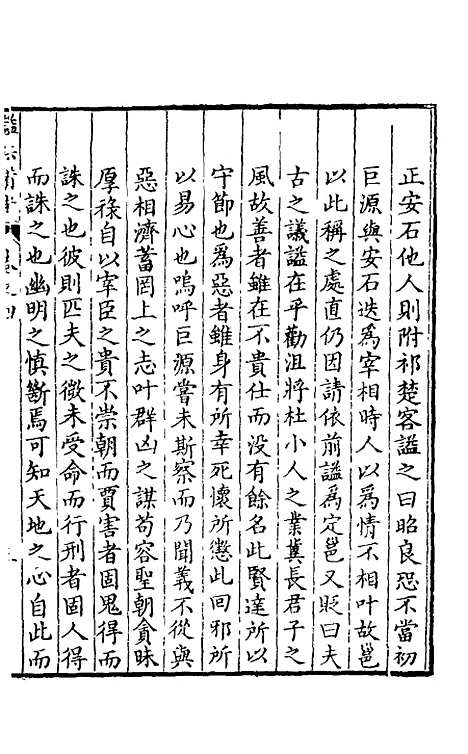 正安石他人則附祁楚客謚之曰昭良恐不當初
巨源與安石迭爲宰相時人以爲情不相叶故邕
以此稱之處直仍因請依前謚爲定邕又貶曰夫
古之議謚在乎勸沮將杜小人之業冀長君子之
風故善者雖在不貴仕而没有餘名此賢達所以
守節也爲惡者雖身有所幸死懷所懲此回邪所
以易心也嗚呼巨源嘗未斯察而乃聞義不從與
惡相濟蓄罔上之志叶群凶之謀苟容聖朝貪昧
厚祿自以宰臣之貴不崇朝而賈害者固鬼得而
誅之也彼則匹夫之微未受命而行刑者固人得
而誅之也幽明之慎斷焉可知天地之心自此而